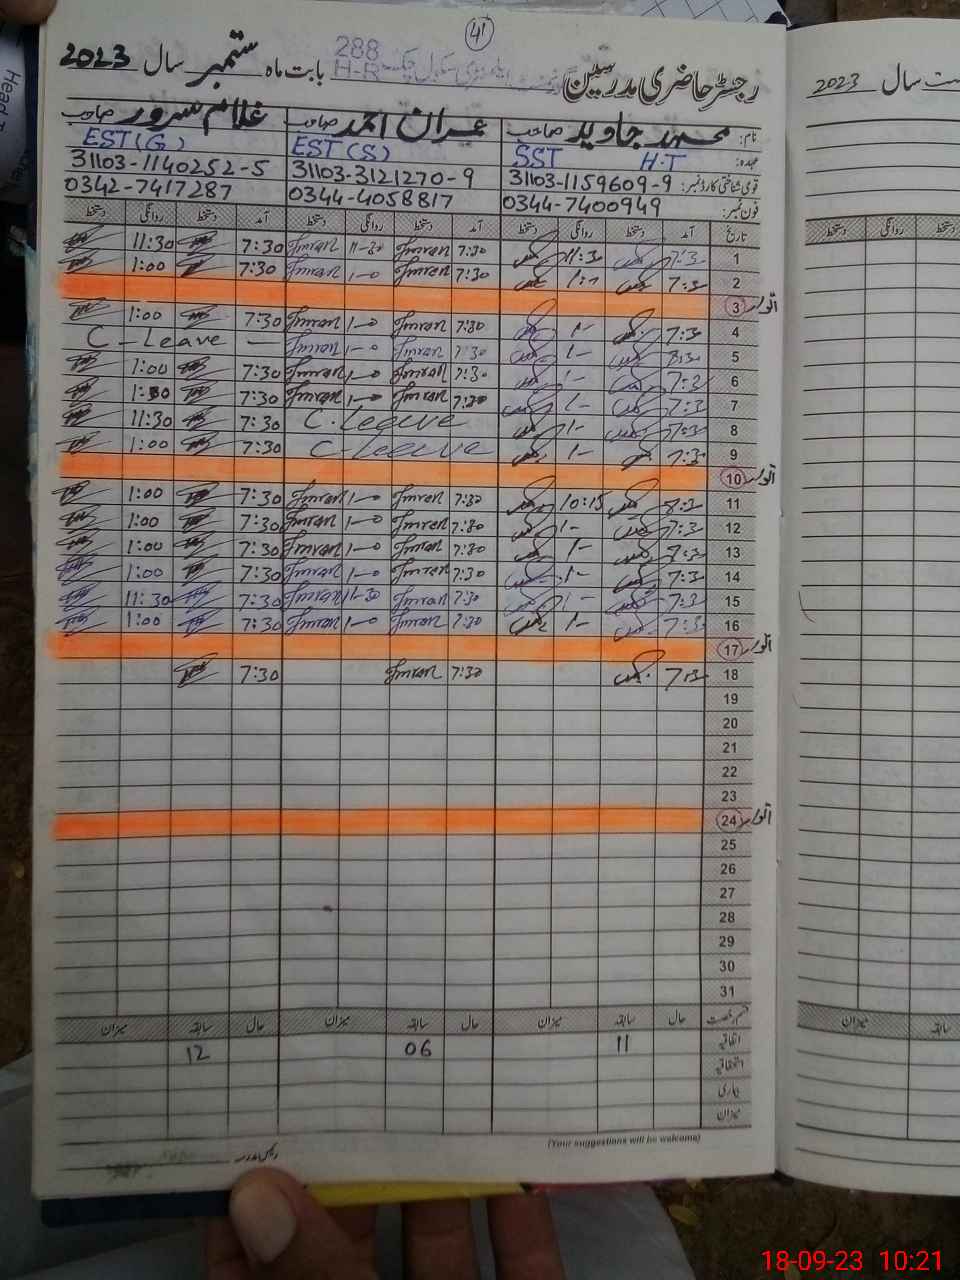 41
رجسٹر حاضری مدرسین 288 H-R بابت ماہ ستمبر سال 2023
نام: محمد جاوید صاحب عمران احمد صاحب غلام سرور صاحب
عہدہ: SST H.T EST (S) EST (G)
قومی شناختی کارڈ نمبر: 31103-1159609-9 31103-3121270-9 31103-1140252-5
فون نمبر: 0344-7400949 0344-4058817 0342-7417287
تاریخ آمد دستخط روانگی دستخط آمد دستخط روانگی دستخط آمد دستخط روانگی دستخط
1 7:3 11:3 7:30 Imran 11-30 Imran 7:30 11:30
2 7:3 7:30 Imran 1-0 Imran 7:30 1:00
3 اتوار
4 7:3 1- 7:30 Imran 1-0 Imran 7:30 1:00
5 1- 7:30 Imran 1-0 Imran C-Leave
6 7:3 1- 7:30 Imran 1-0 Imran 7:30 1:00
7 7:3 1- 7:30 Imran 1-0 Imran 7:30
8 7:3 1- C.Leave 7:30 11:30
9 7:3 1- C-Leave 7:30 1:00
10 اتوار
11 10:15 7:30 Imran 1-0 Imran 7:30 1:00
12 7:3 1- 7:30 Imran 1-0 Imran 7:30 1:00
13 1- 7:30 Imran 1-0 Imran 7:30 1:00
14 7:3 1- 7:30 Imran 1-0 Imran 7:30 1:00
15 7:3 1- 7:30 Imran 11-30 Imran 7:30 11:30
16 7:3 1- 7:30 Imran 1-0 Imran 7:30 1:00
17 اتوار
18 7:3 7:30 Imran 7:30
19
20
21
22
23
24 اتوار
25
26
27
28
29
30
31
قسم رخصت حال سابقہ میزان حال سابقہ میزان حال سابقہ میزان
اتفاقیہ 11 06 12
استحقاقیہ
بیماری
میزان
(Your suggestions will be welcome)
رئیس مدرسہ
سال 2023
دستخط روانگی دستخط
میزان سابقہ
Head
18-09-23 10:21